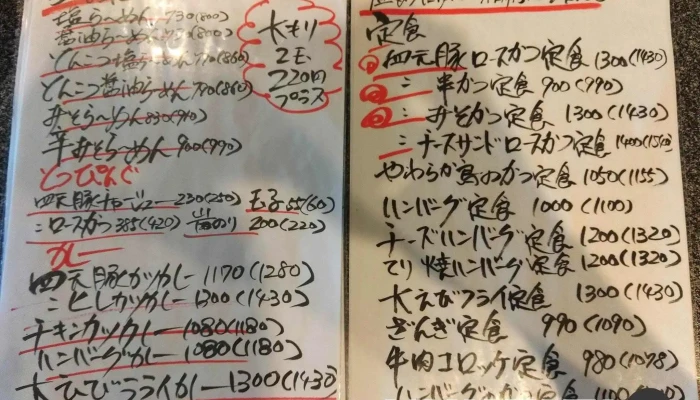 塩らーめん 730(800)
醤油らーめん
とんこつ塩らーめん 780(860)
とんこつ醤油らーめん 780(860)
みそらーめん 830(910)
辛みそらーめん 900(990)
大もり
2玉
220円
プラス
とっぴんぐ
四元豚チャーシュー 230(250) 玉子 55(60)
〃ロースかつ 385(420) 岩のり 200(220)
カレー
四元豚カツカレー 1170(1280)
〃ヒレカツカレー 1300(1430)
チキンカツカレー 1080(1180)
ハンバーグカレー 1080(1180)
大えびフライカレー 1300(1430)
定食
四元豚ロースかつ定食 1300(1430)
〃串かつ定食 900(990)
〃みそかつ定食 1300(1430)
〃チーズサンドロースかつ定食 1400(1540)
やわらか鳥のかつ定食 1050(1155)
ハンバーグ定食 1000(1100)
チーズハンバーグ定食 1200(1320)
てり焼ハンバーグ定食 1200(1320)
大えびフライ定食 1300(1430)
ざんぎ定食 990(1090)
牛肉コロッケ定食 980(1078)